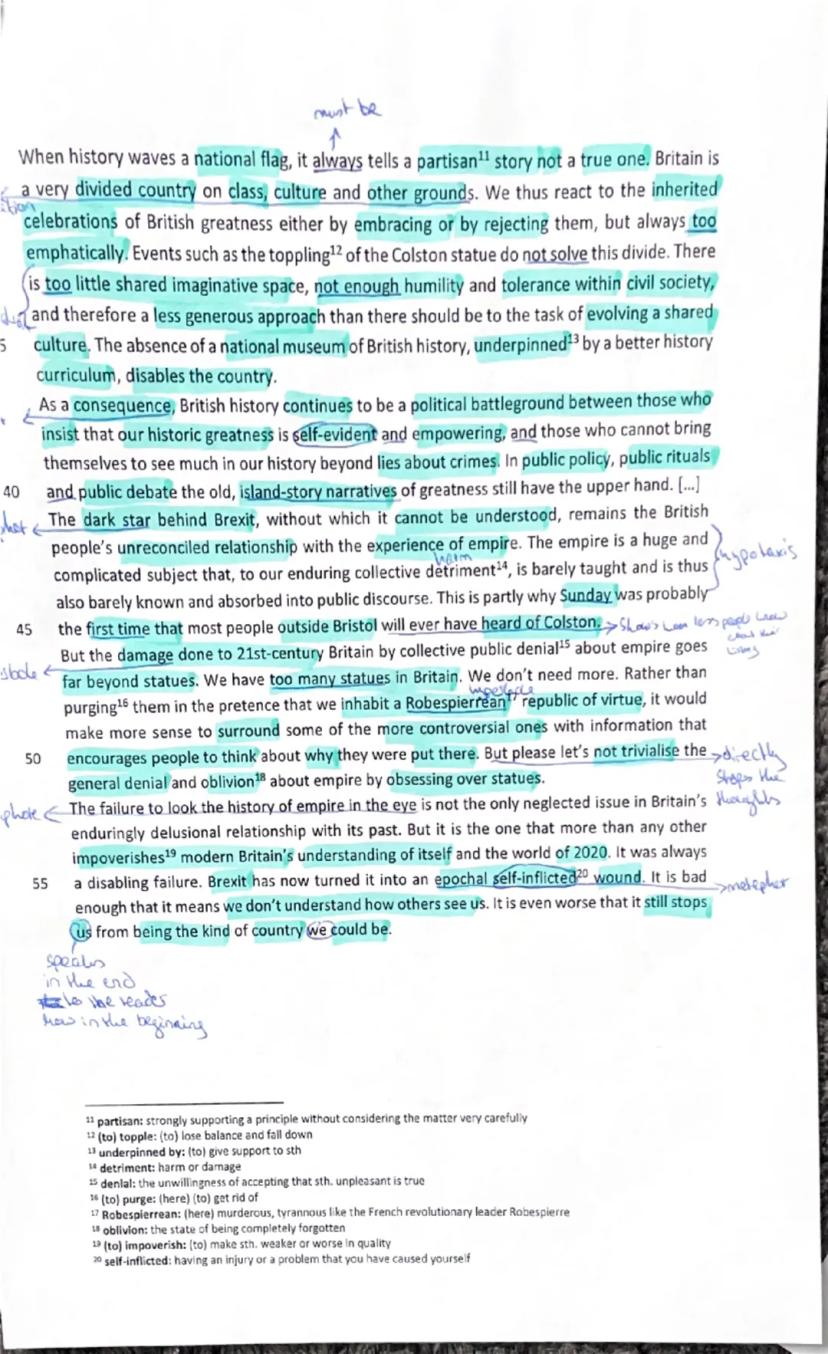 must be
When history waves a national flag, it always tells a partisan¹¹ story not a true one. Britain is
a very divided country on class, culture and other grounds. We thus react to the inherited
celebrations of British greatness either by embracing or by rejecting them, but always too
emphatically. Events such as the toppling¹² of the Colston statue do not solve this divide. There
is too little shared imaginative space, not enough humility and tolerance within civil society,
and therefore a less generous approach than there should be to the task of evolving a shared
5 culture. The absence of a national museum of British history, underpinned¹³ by a better history
curriculum, disables the country.
As a consequence, British history continues to be a political battleground between those who
insist that our historic greatness is self-evident and empowering, and those who cannot bring
themselves to see much in our history beyond lies about crimes. In public policy, public rituals
40 and public debate the old, island-story narratives of greatness still have the upper hand. [...]
The dark star behind Brexit, without which it cannot be understood, remains the British
people's unreconciled relationship with the experience of empire. The empire is a huge and
harm
hypotaxis
complicated subject that, to our enduring collective detriment¹⁴, is barely taught and is thus
also barely known and absorbed into public discourse. This is partly why Sunday was probably
45 the first time that most people outside Bristol will ever have heard of Colston. Shows less people know
But the damage done to 21st-century Britain by collective public denial¹⁵ about empire goes
far beyond statues. We have too many statues in Britain. We don't need more. Rather than
purging¹⁶ them in the pretence that we inhabit a Robespierrean¹⁷ republic of virtue, it would
make more sense to surround some of the more controversial ones with information that
50 encourages people to think about why they were put there. But please let's not trivialise the directly
general denial and oblivion¹⁸ about empire by obsessing over statues. stops the
thoughts
The failure to look the history of empire in the eye is not the only neglected issue in Britain's
enduringly delusional relationship with its past. But it is the one that more than any other
impoverishes¹⁹ modern Britain's understanding of itself and the world of 2020. It was always
55 a disabling failure. Brexit has now turned it into an epochal self-inflicted²⁰ wound. It is bad metepher
enough that it means we don't understand how others see us. It is even worse that it still stops
us from being the kind of country we could be.
speaks
in the end
to the reader
how in the beginning
¹¹ partisan: strongly supporting a principle without considering the matter very carefully
¹² (to) topple: (to) lose balance and fall down
¹³ underpinned by: (to) give support to sth
¹⁴ detriment: harm or damage
¹⁵ denial: the unwillingness of accepting that sth. unpleasant is true
¹⁶ (to) purge: (here) (to) get rid of
¹⁷ Robespierrean: (here) murderous, tyrannous like the French revolutionary leader Robespierre
¹⁸ oblivion: the state of being completely forgotten
¹⁹ (to) impoverish: (to) make sth. weaker or worse in quality
²⁰ self-inflicted: having an injury or a problem that you have caused yourself